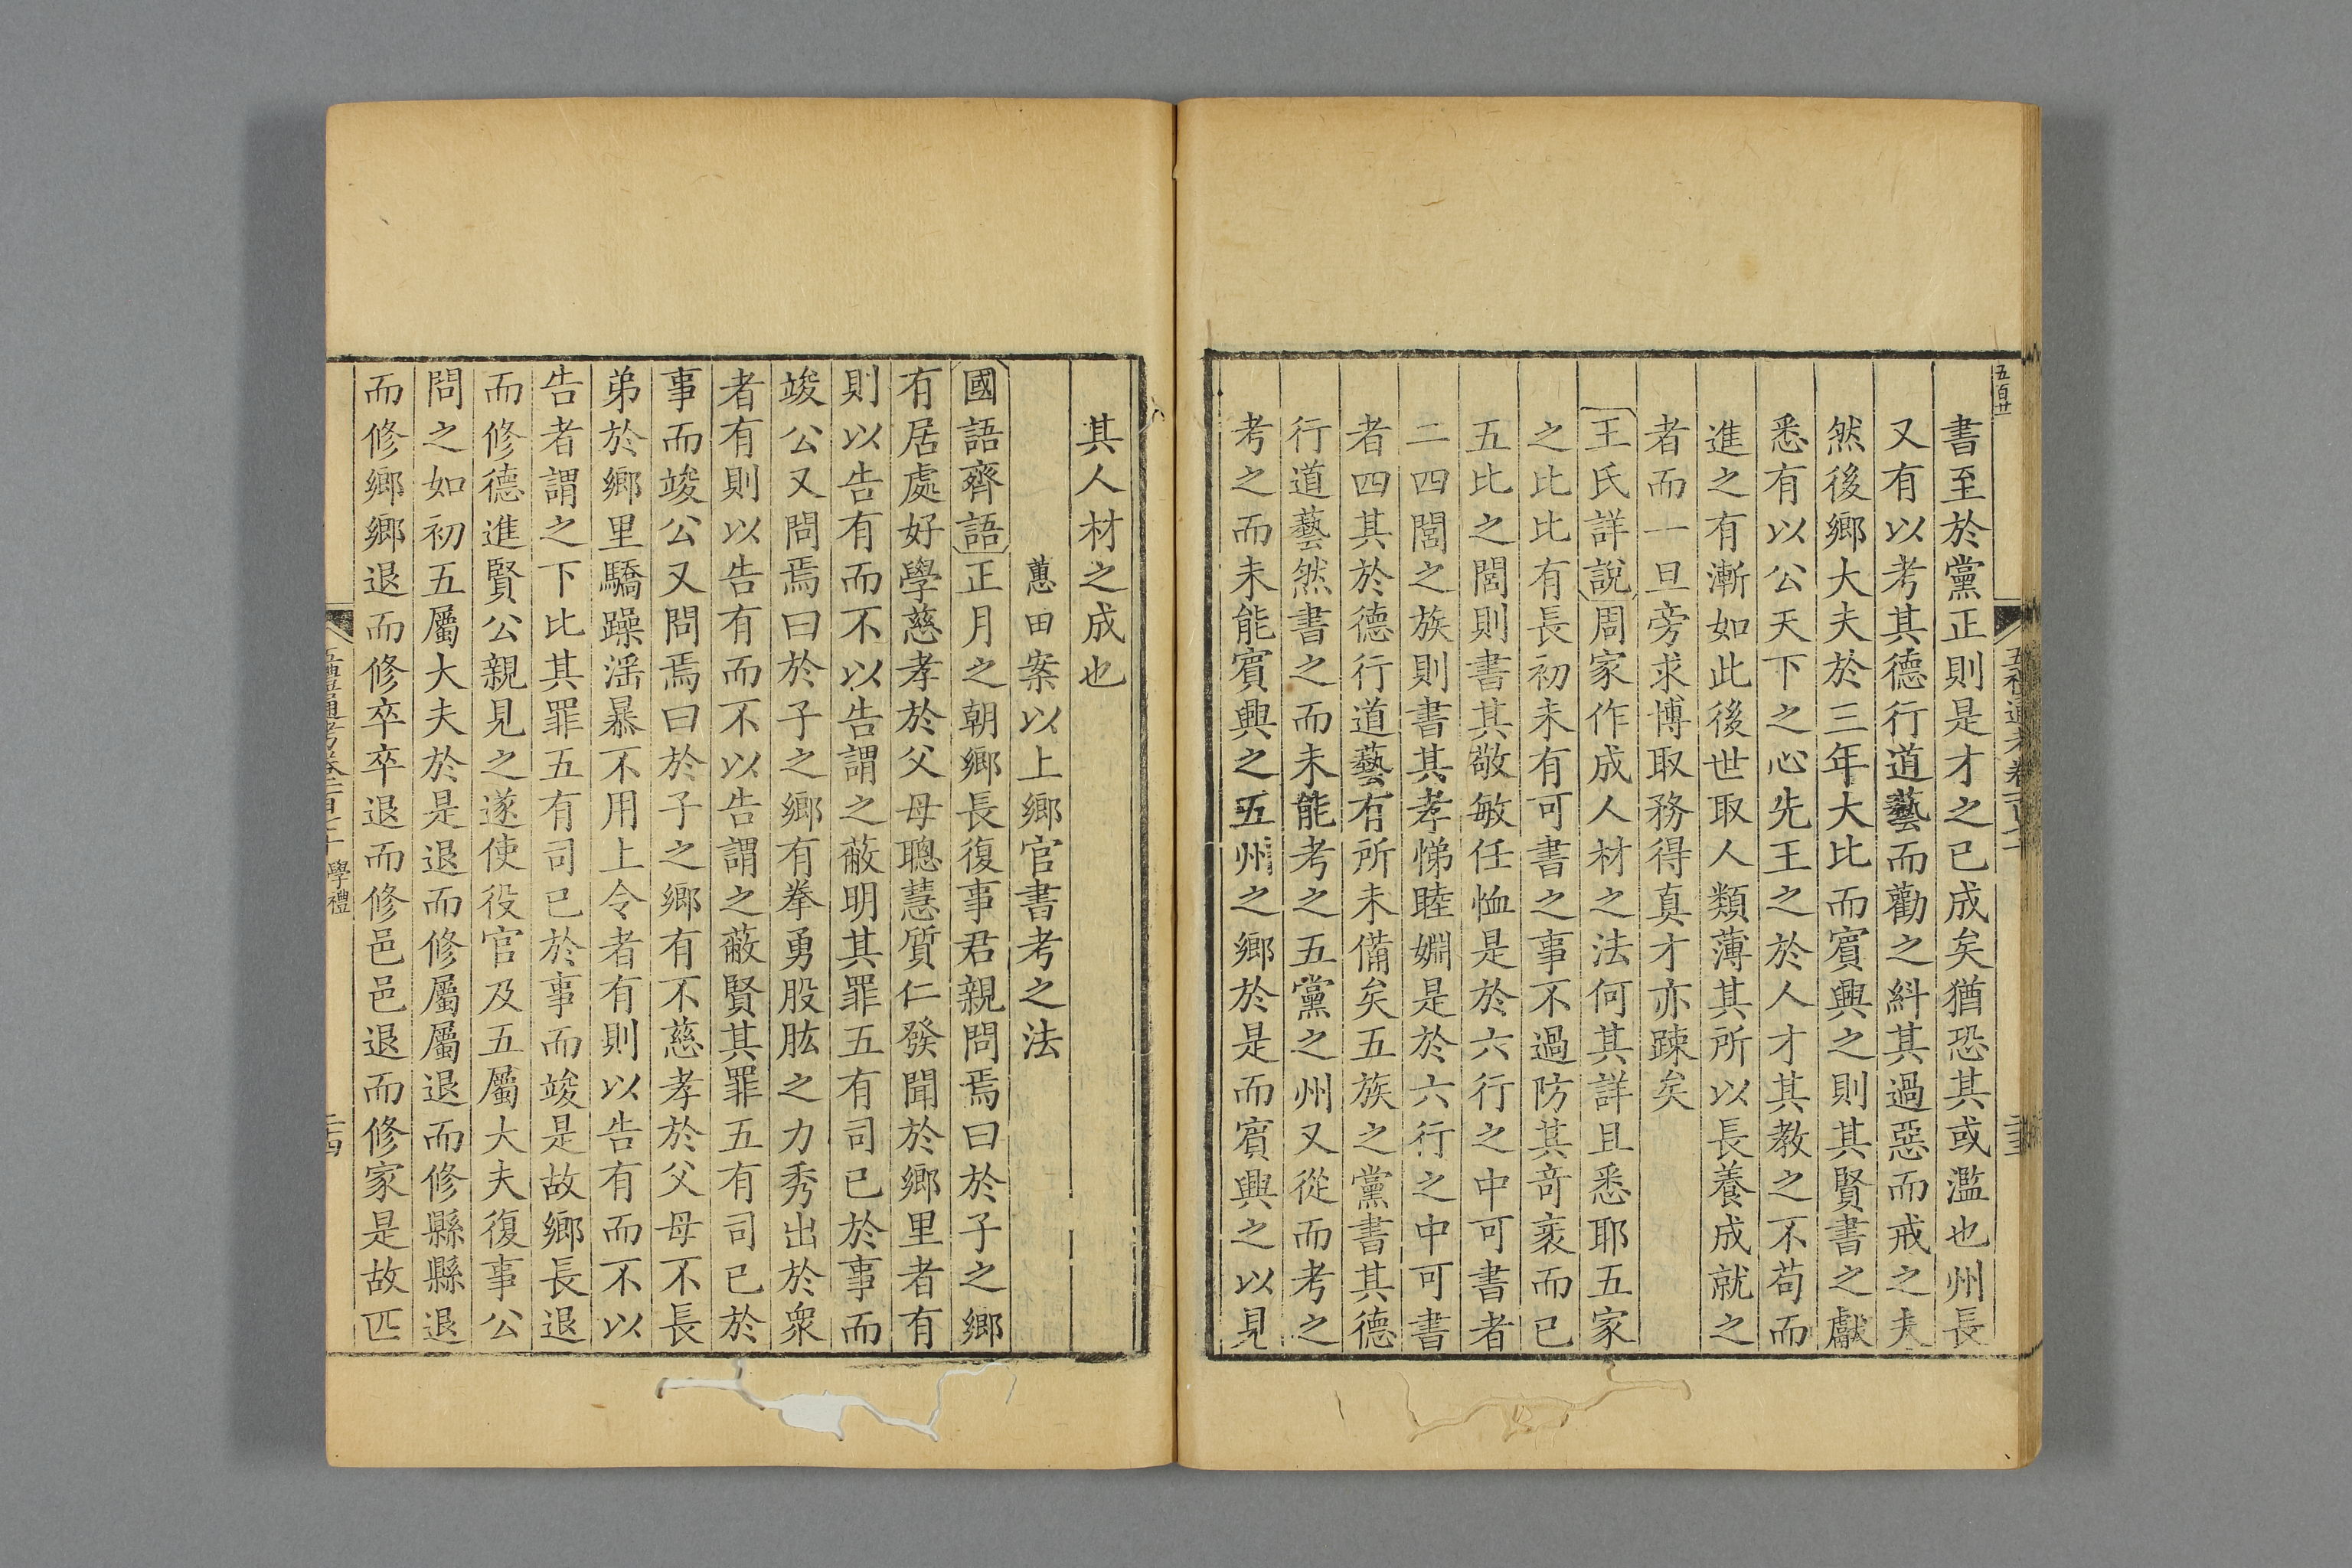 五百廿
書至於黨正則是才之已成矣猶恐其或濫也州長
又有以考其德行道藝而勸之糾其過惡而戒之夫
然後鄉大夫於三年大比而賓興之則其賢書之獻
悉有以公天下之心先王之於人才其教之不苟而
進之有漸如此後世取人類薄其所以長養成就之
者而一旦旁求博取務得真才亦踈矣
王氏詳說周家作成人材之法何其詳且悉耶五家
之比比有長初未有可書之事不過防其竒衺而已
五比之閭則書其敬敏任恤是於六行之中可書者
二四閭之族則書其孝悌睦婣是於六行之中可書
者四其於德行道藝有所未備矣五族之黨書其德
行道藝然書之而未能考之五黨之州又從而考之
考之而未能賓興之五州之鄉於是而賓興之以見
其人材之成也
蕙田案以上鄉官書考之法
國語齊語正月之朝鄉長復事君親問焉曰於子之鄉
有居處好學慈孝於父母聰慧質仁發聞於鄉里者有
則以告有而不以告謂之蔽明其罪五有司已於事而
竣公又問焉曰於子之鄉有拳勇股肱之力秀出於衆
者有則以告有而不以告謂之蔽賢其罪五有司已於
事而竣公又問焉曰於子之鄉有不慈孝於父母不長
弟於鄉里驕躁滛暴不用上令者有則以告有而不以
告者謂之下比其罪五有司已於事而竣是故鄉長退
而修德進賢公親見之遂使役官及五屬大夫復事公
問之如初五屬大夫於是退而修屬屬退而修縣縣退
而修鄉鄉退而修卒卒退而修邑邑退而修家是故匹
學禮